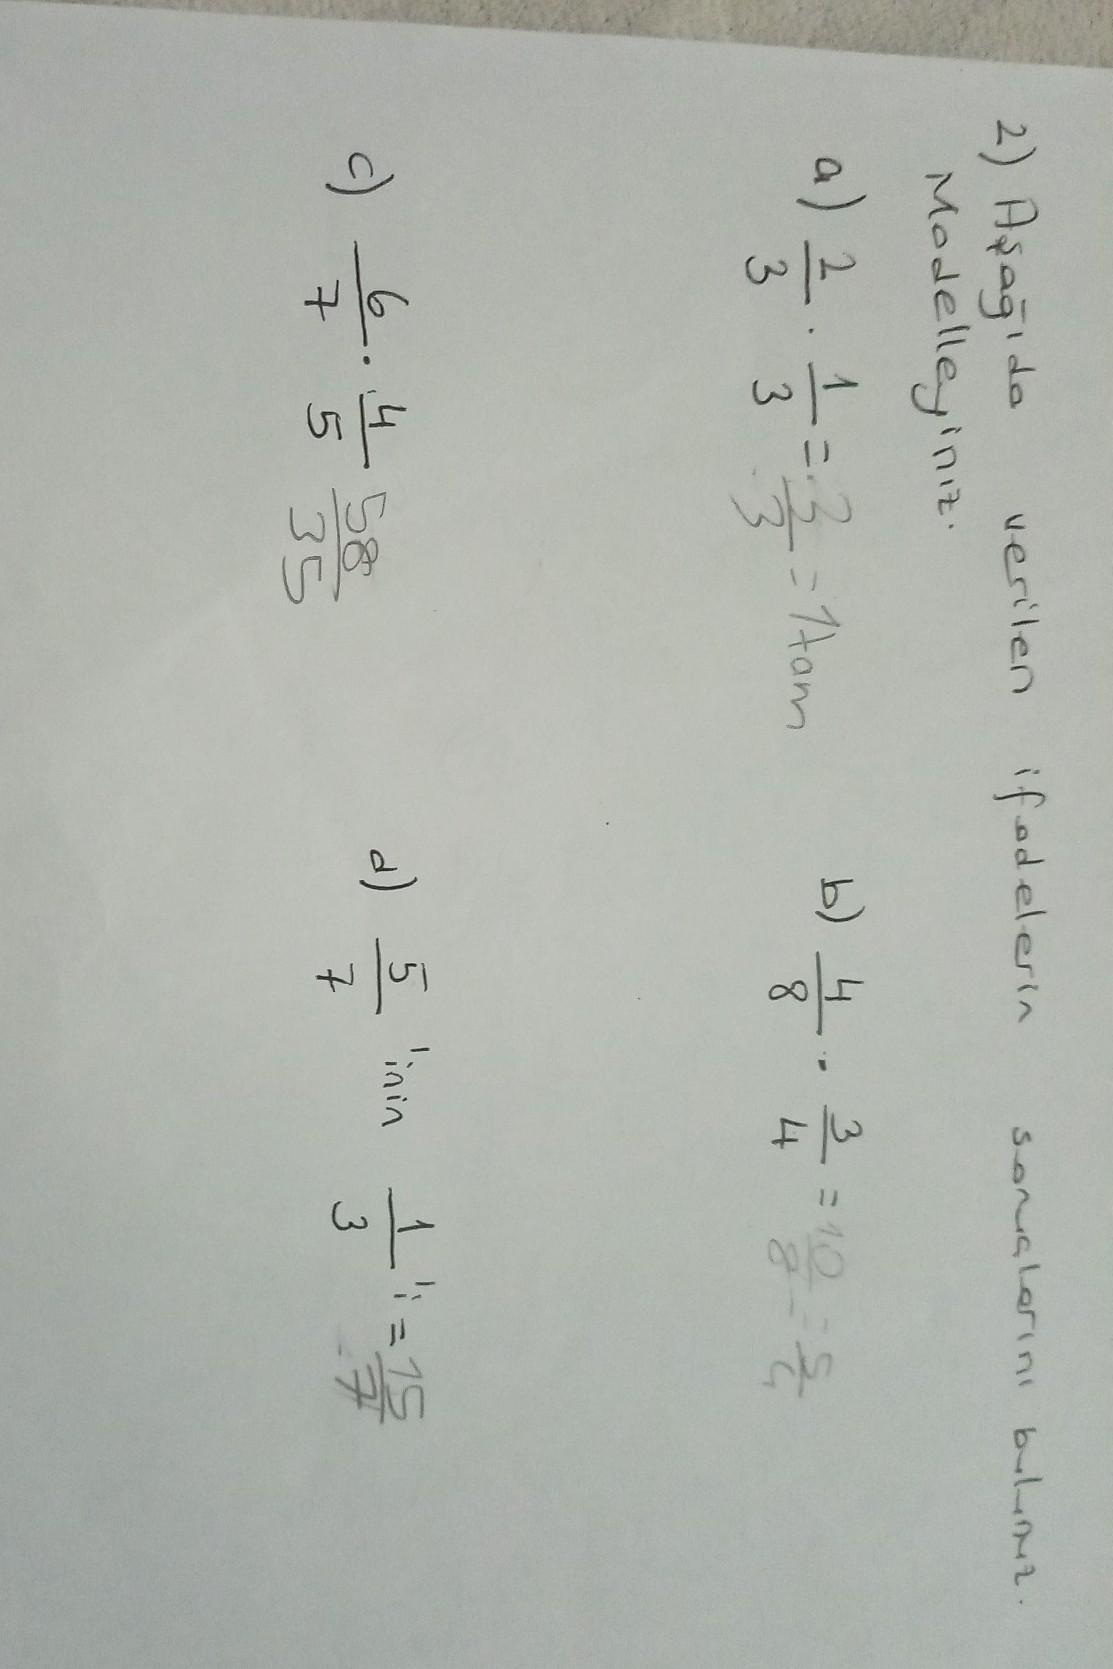 2) Aşağıda verilen ifadelerin sonuçlarını bulunuz.
Modelleyiniz.
a) 2/3 . 1/3 = 3/3 = 1 tam
b) 4/8 . 3/4 = 10/8 = 5/4
c) 6/7 . 4/5 58/35
d) 5/7 'inin 1/3 'i = 15/7